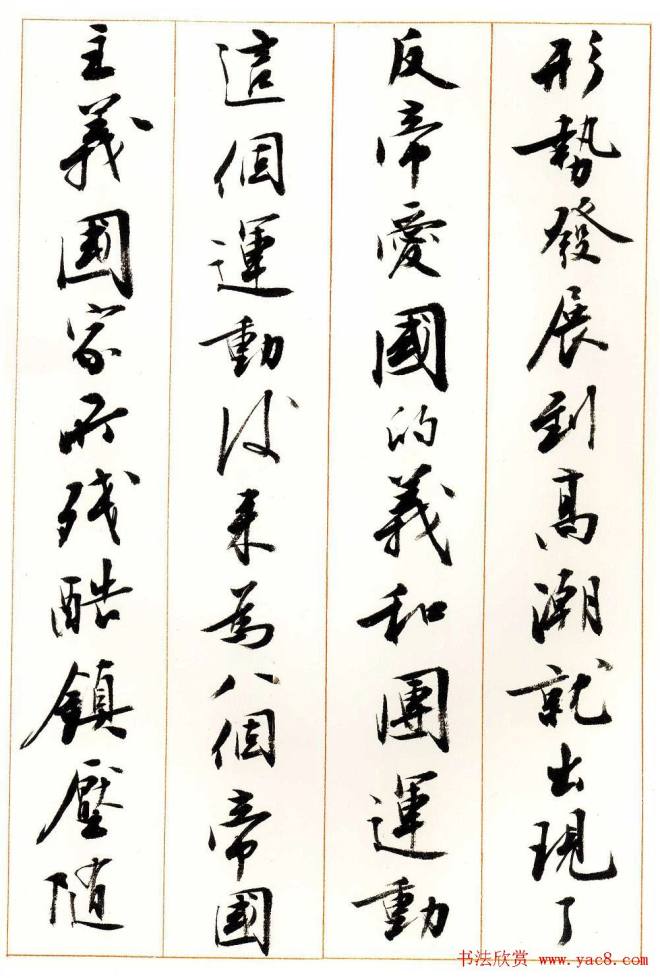 形勢發展到高潮就出現了
反帝愛國的義和團運動
這個運動後来為八個帝國
主義國家所残酷鎮壓随
书法欣赏 www.yac8.com